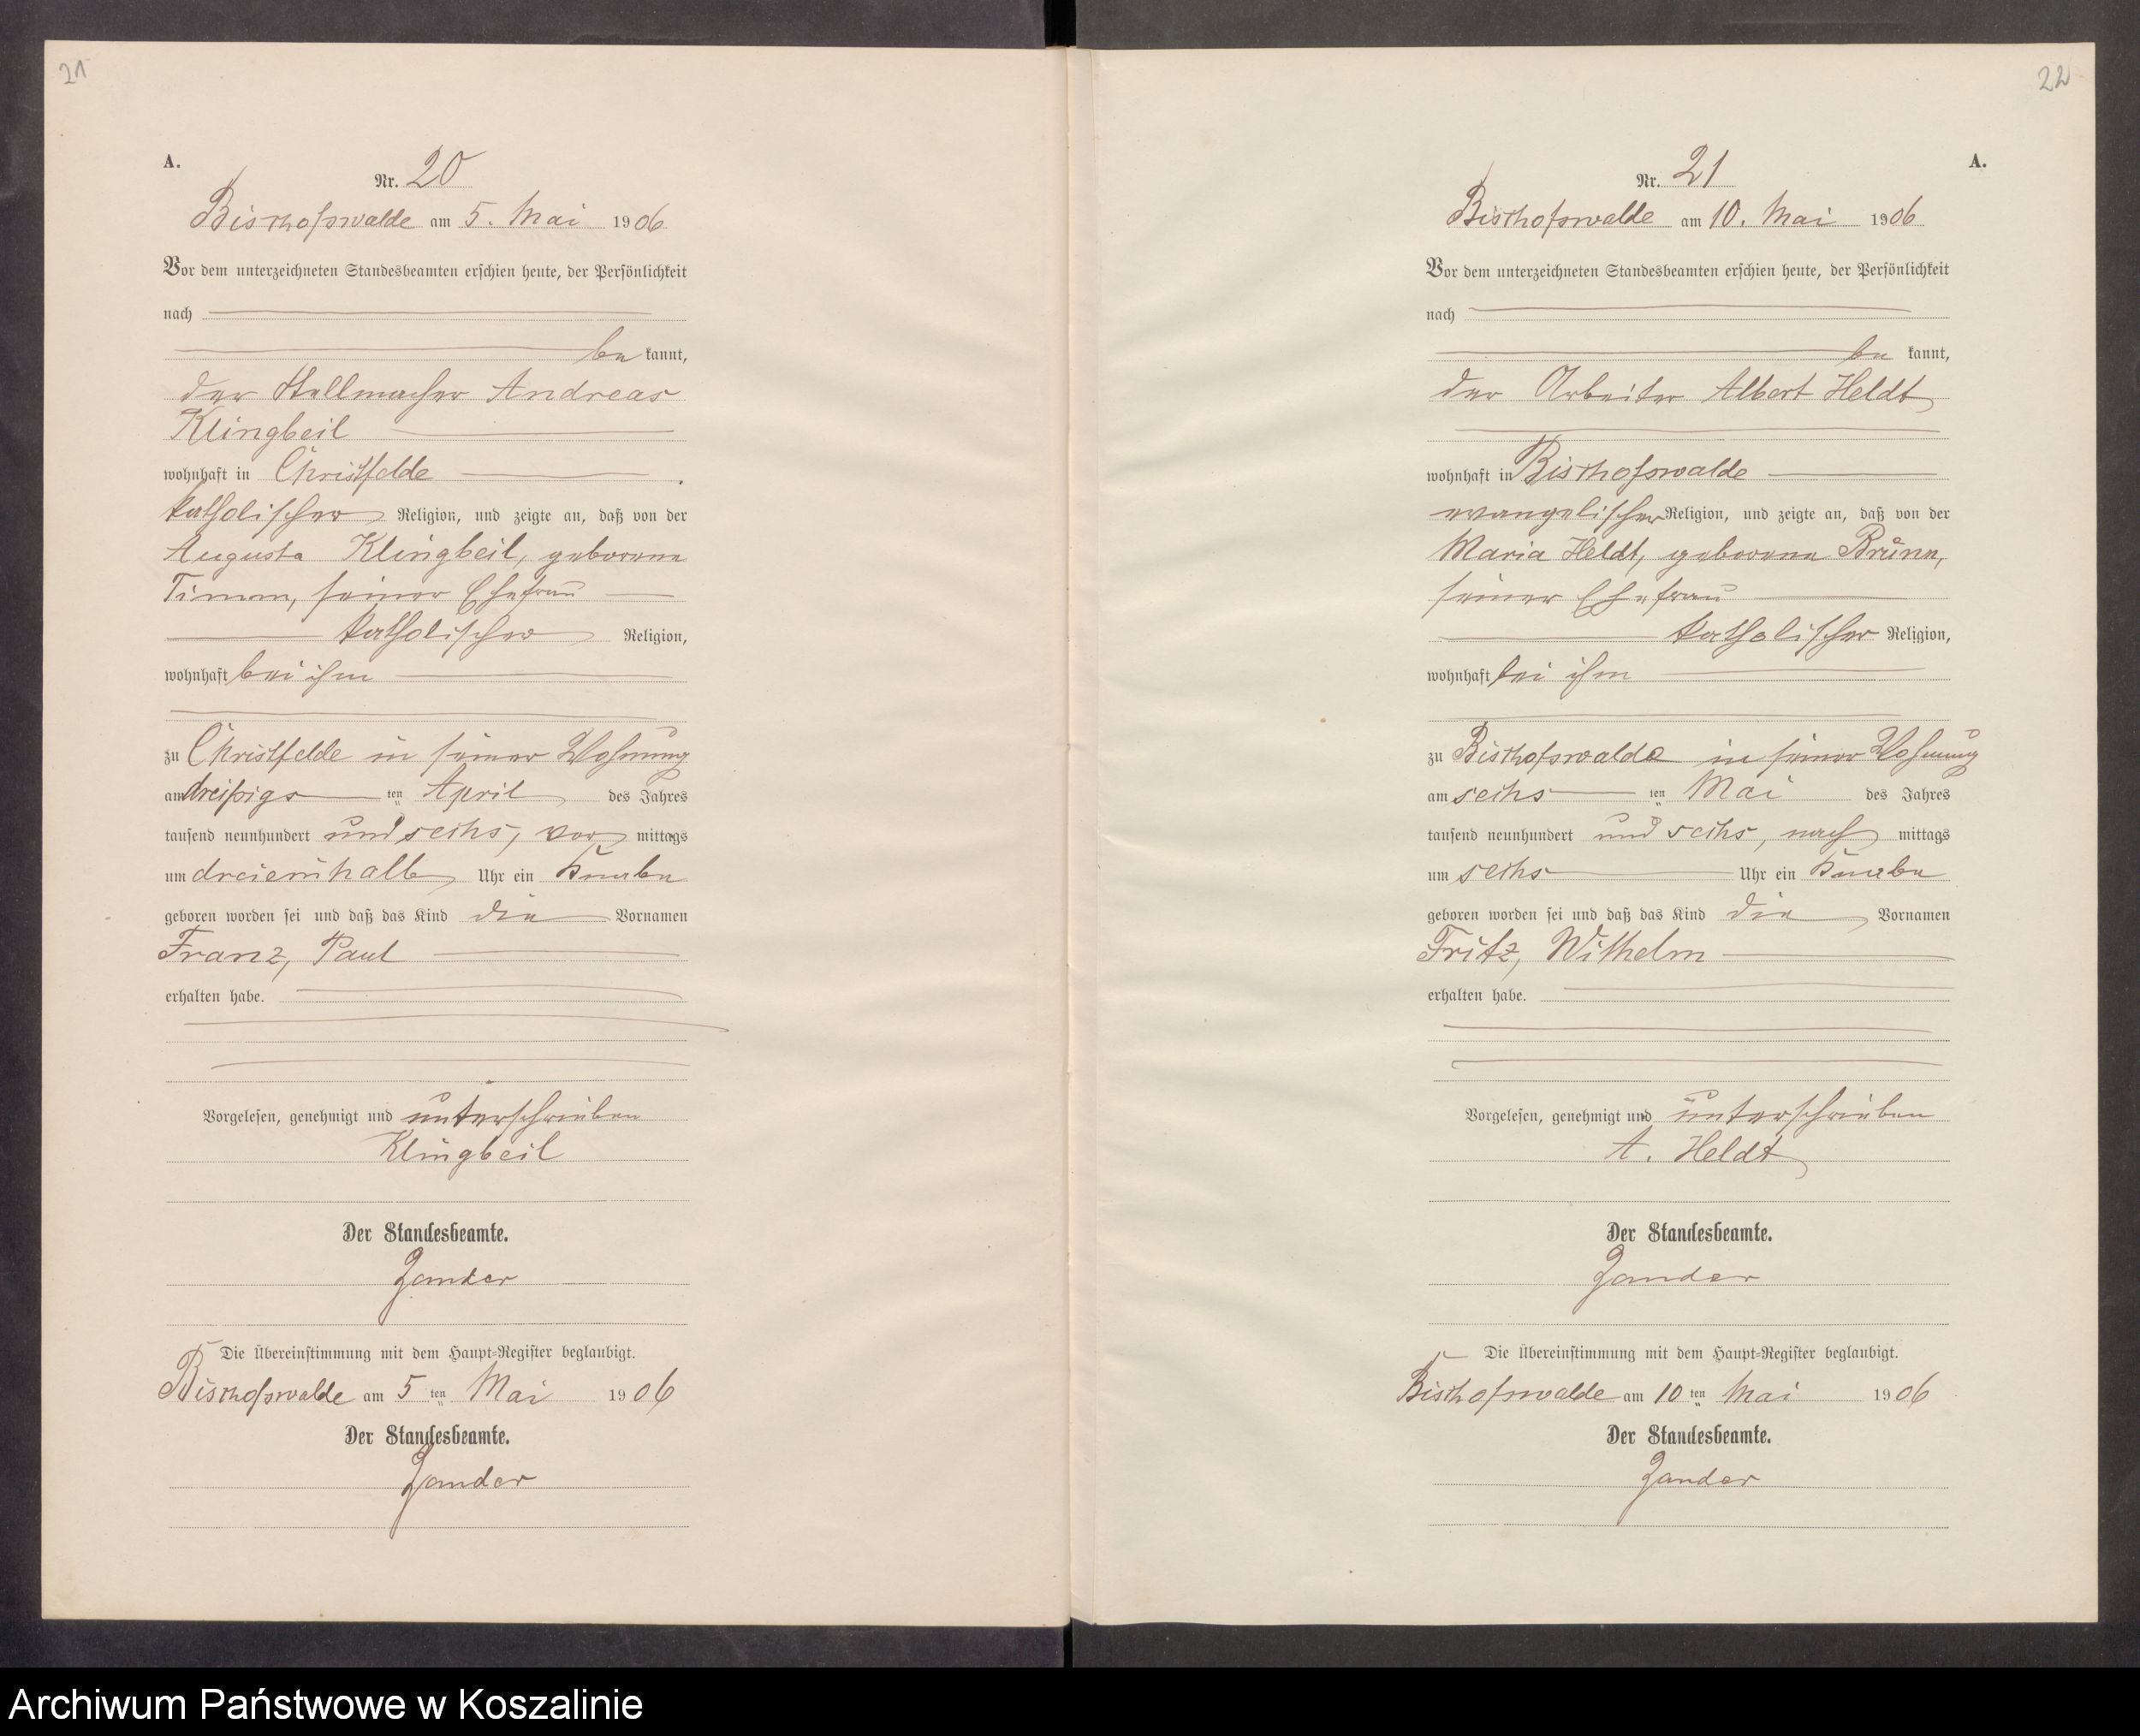 21
A.
Nr. 20
Bischofswalde am 5. Mai 1906
Vor dem unterzeichneten Standesbeamten erschien heute, der Persönlichkeit
nach
be kannt,
der Stellmacher Andreas
Klingbeil
wohnhaft in Christfelde
katholischer Religion, und zeigte an, daß von der
Augusta Klingbeil, geborene
Timm, seiner Ehefrau
katholischer Religion,
wohnhaft bei ihm
zu Christfelde in seiner Wohnung
am dreißigs ten April des Jahres
tausend neunhundert und sechs, vor mittags
um dreieinhalb Uhr ein Knabe
geboren worden sei und daß das Kind die Vornamen
Franz, Paul
erhalten habe.
Vorgelesen, genehmigt und unterschrieben
Klingbeil
Der Standesbeamte.
Zander
Die Übereinstimmung mit dem Haupt-Register beglaubigt.
Bischofswalde am 5 ten Mai 1906
Der Standesbeamte.
Zander
22
A.
Nr. 21
Bischofswalde am 10. Mai 1906
Vor dem unterzeichneten Standesbeamten erschien heute, der Persönlichkeit
nach
be kannt,
der Arbeiter Albert Heldt
wohnhaft in Bischofswalde
evangelischer Religion, und zeigte an, daß von der
Maria Heldt, geborene Brünn,
seiner Ehefrau
katholischer Religion,
wohnhaft bei ihm
zu Bischofswalde in seiner Wohnung
am sechs ten Mai des Jahres
tausend neunhundert und sechs, nach mittags
um sechs Uhr ein Knabe
geboren worden sei und daß das Kind die Vornamen
Fritz, Wilhelm
erhalten habe.
Vorgelesen, genehmigt und unterschrieben
A. Heldt
Der Standesbeamte.
Zander
Die Übereinstimmung mit dem Haupt-Register beglaubigt.
Bischofswalde am 10 ten Mai 1906
Der Standesbeamte.
Zander
Archiwum Państwowe w Koszalinie